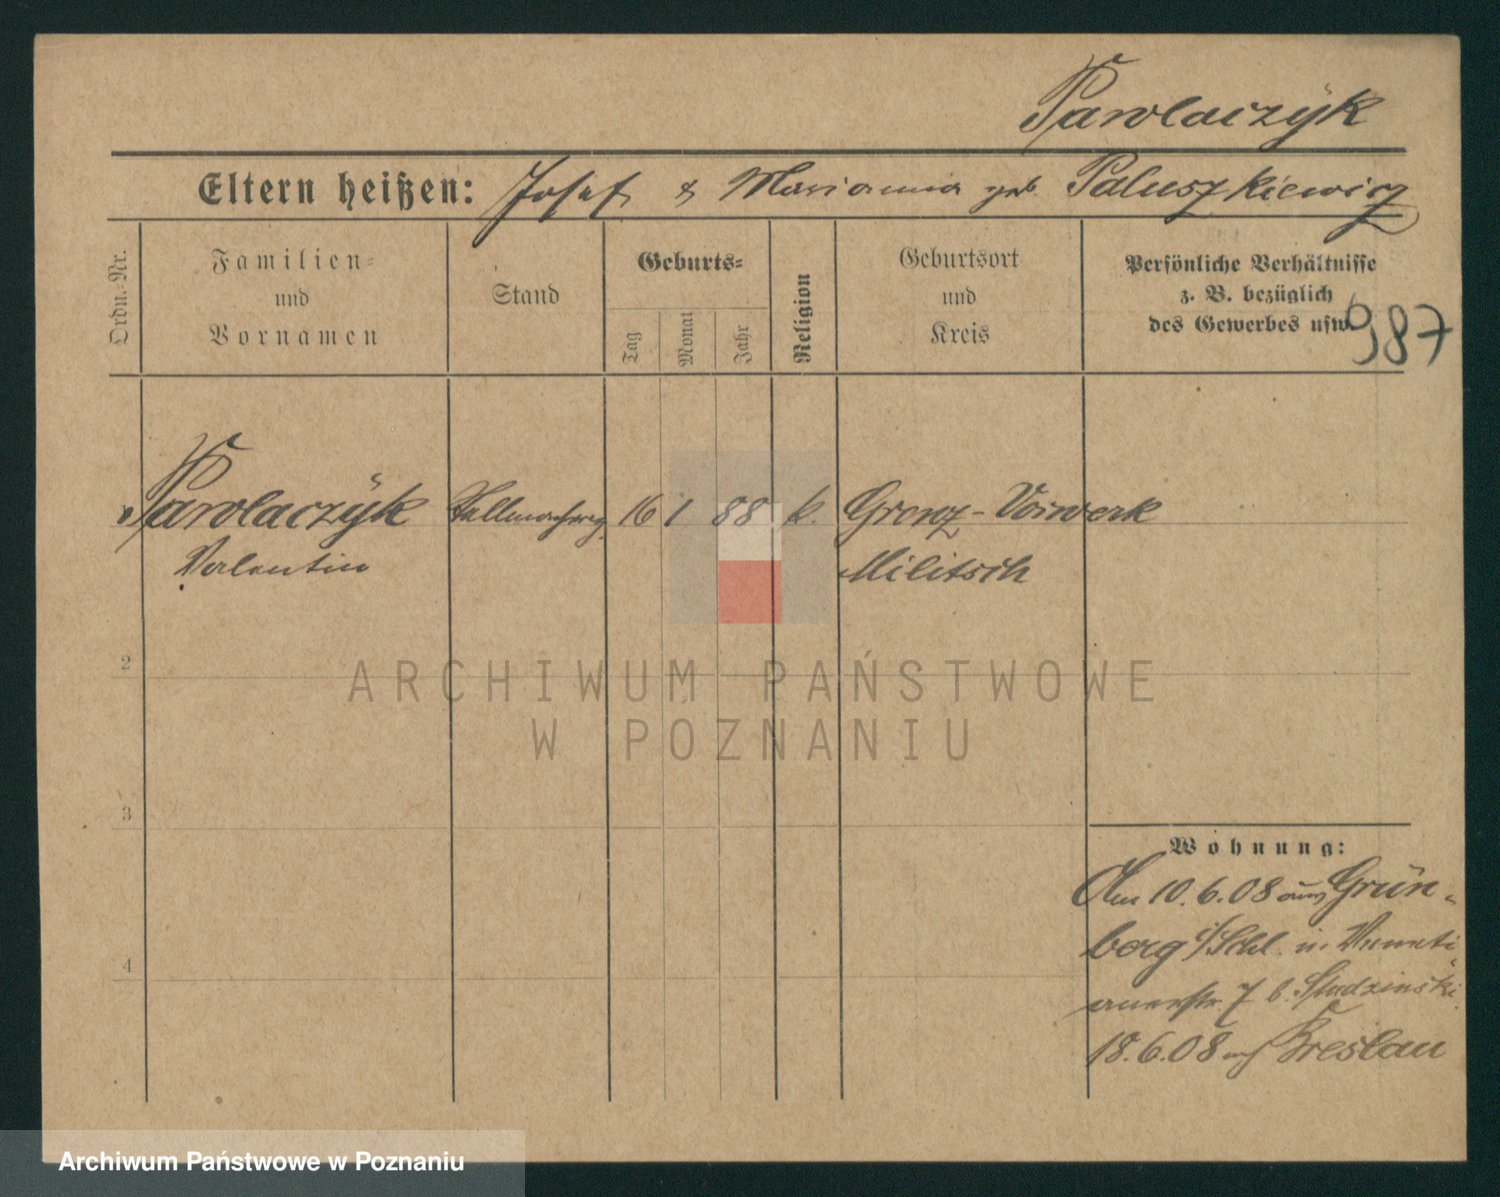 Pawlaczÿk
Eltern heißen: Josef & Marianna geb. Paluszkiewicz
Ordn.-Nr.
Familien-
und
Vornamen
Stand
Geburts-
Tag
Monat
Jahr
Religion
Geburtsort
und
Kreis
Persönliche Verhältnisse
z. B. bezüglich
des Gewerbes usw.
987
1 Pawlaczÿk Stellmacherg. 16 1 88 k. Grenz-Vorwerk
Valentin Militsch
2
3
4
ARCHIWUM PAŃSTWOWE
W POZNANIU
Wohnung:
Am 10.6.08 aus Grün-
berg i/Schl. in Veneti
anerstr. 7 b. Studzinski
18.6.08 nach Breslau
Archiwum Państwowe w Poznaniu